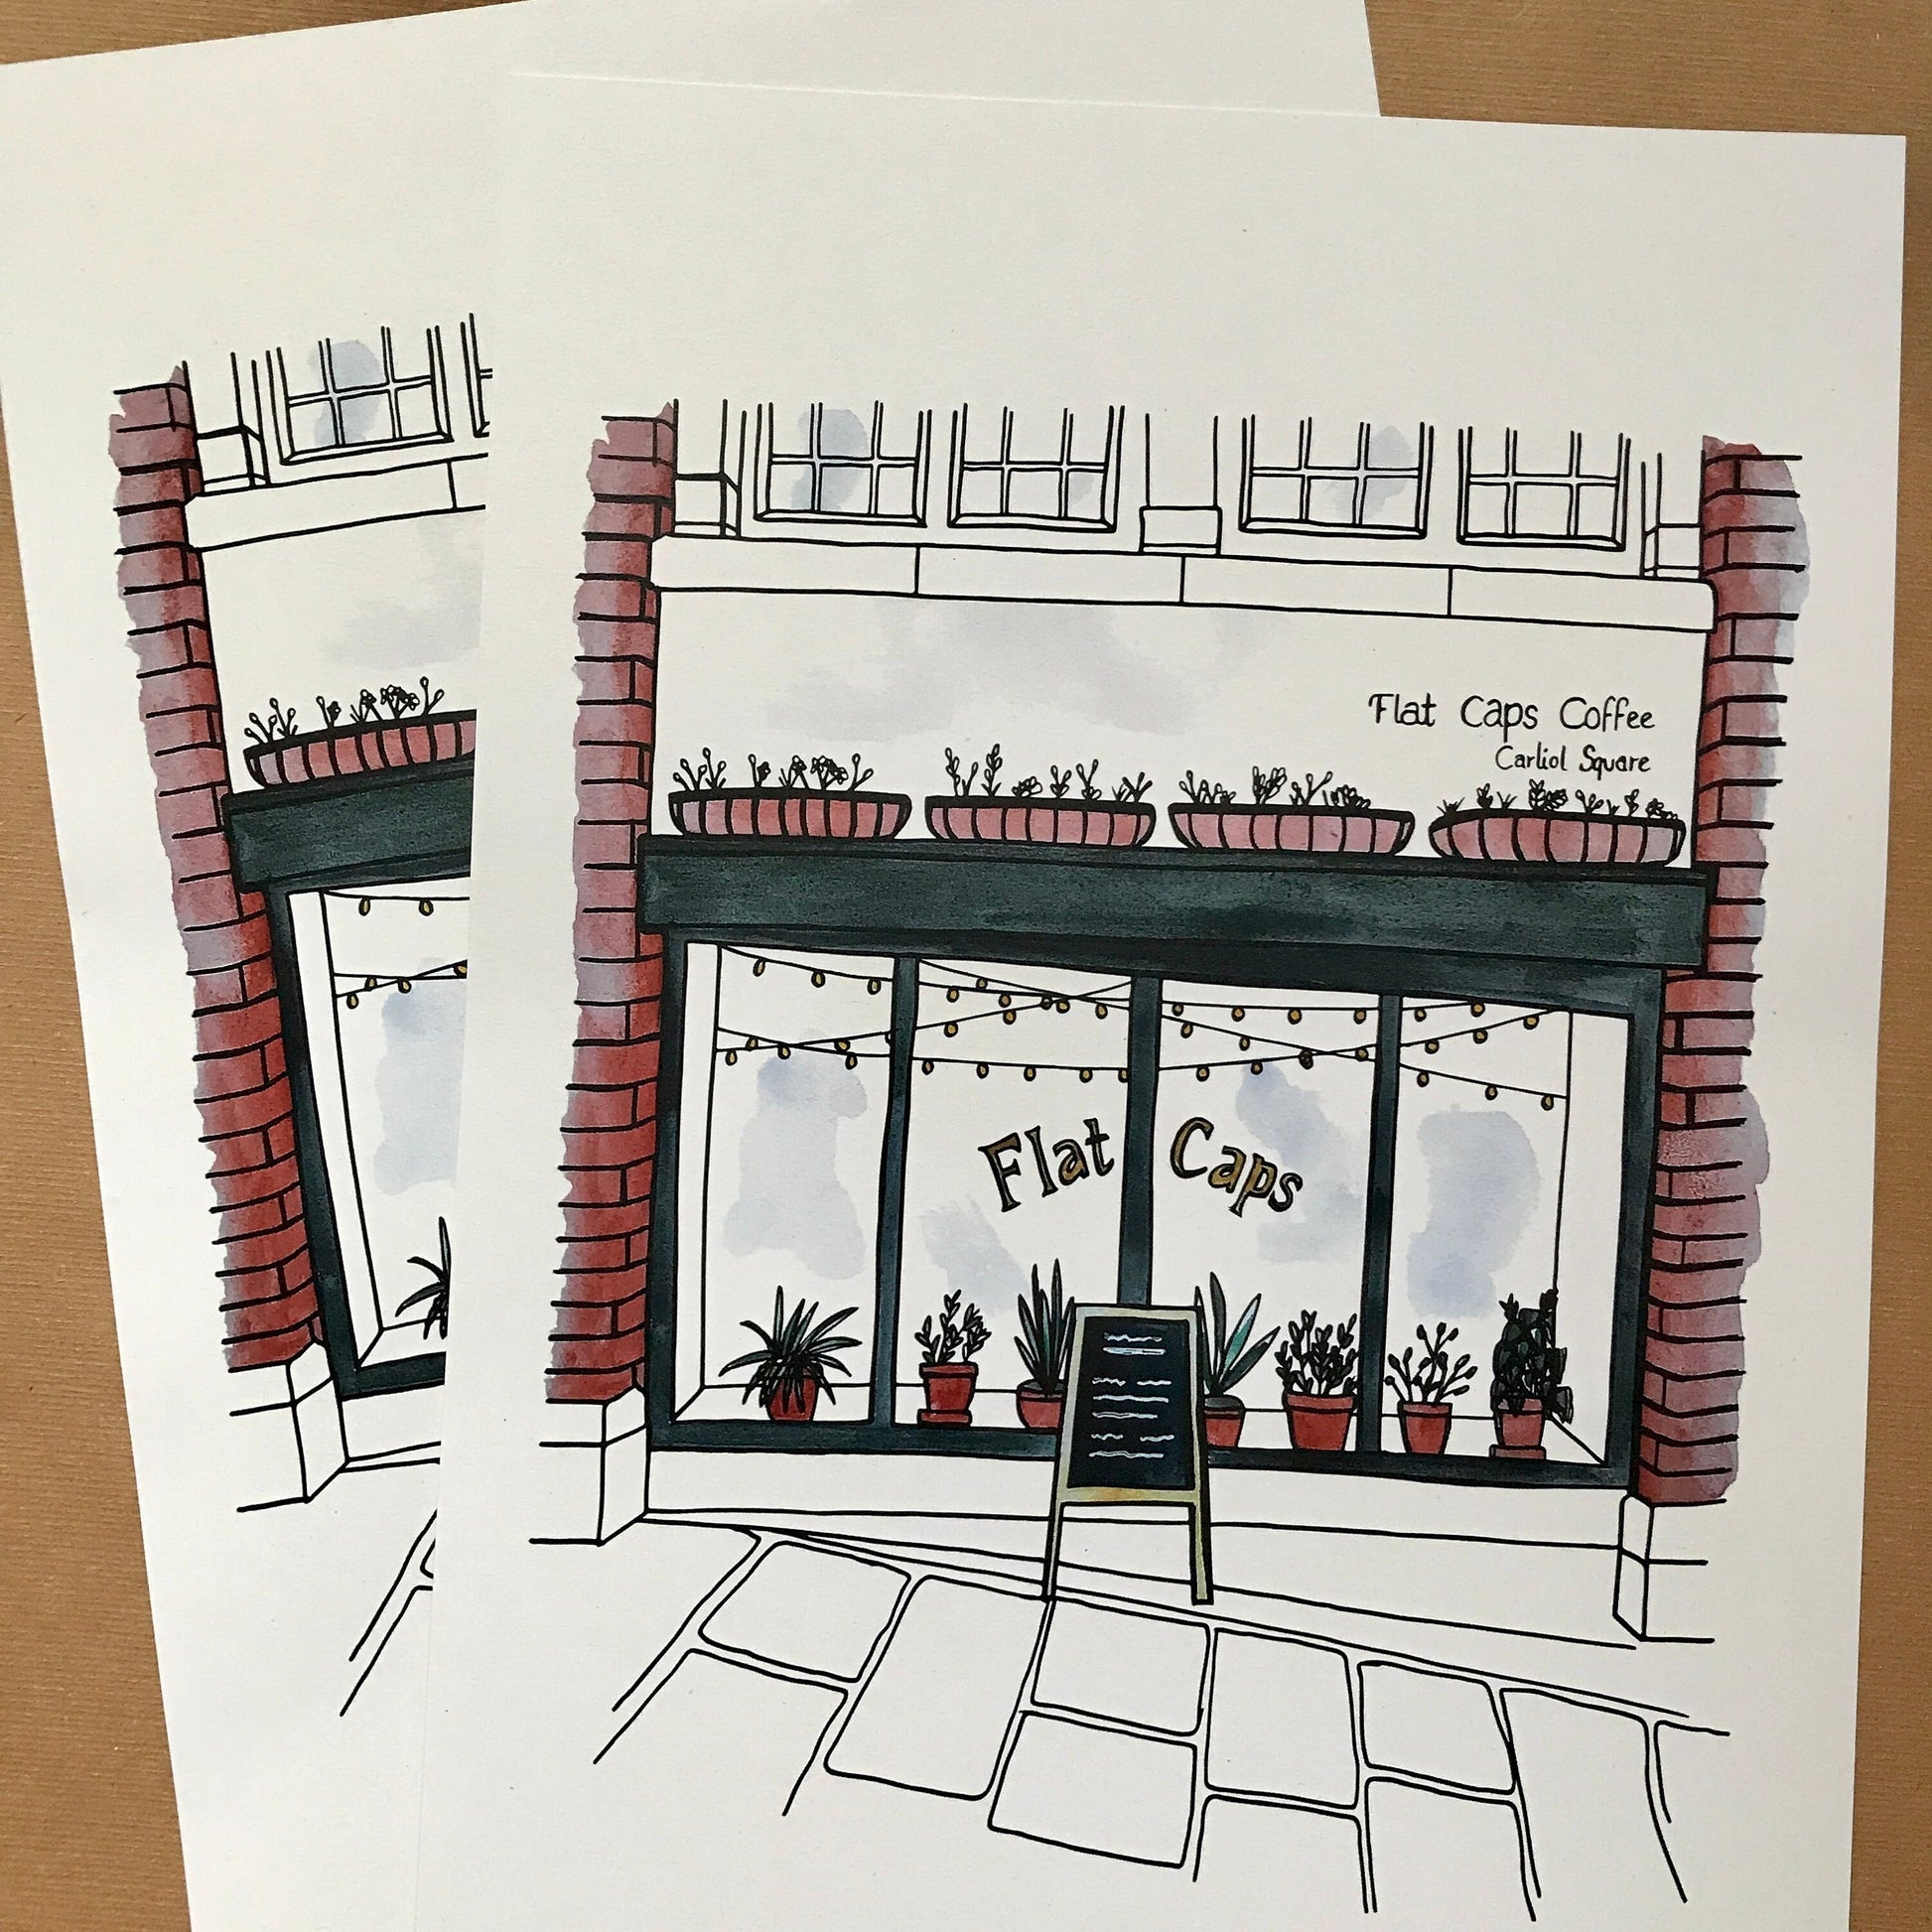 Flat Caps Coffee
Carliol Square
Flat Caps